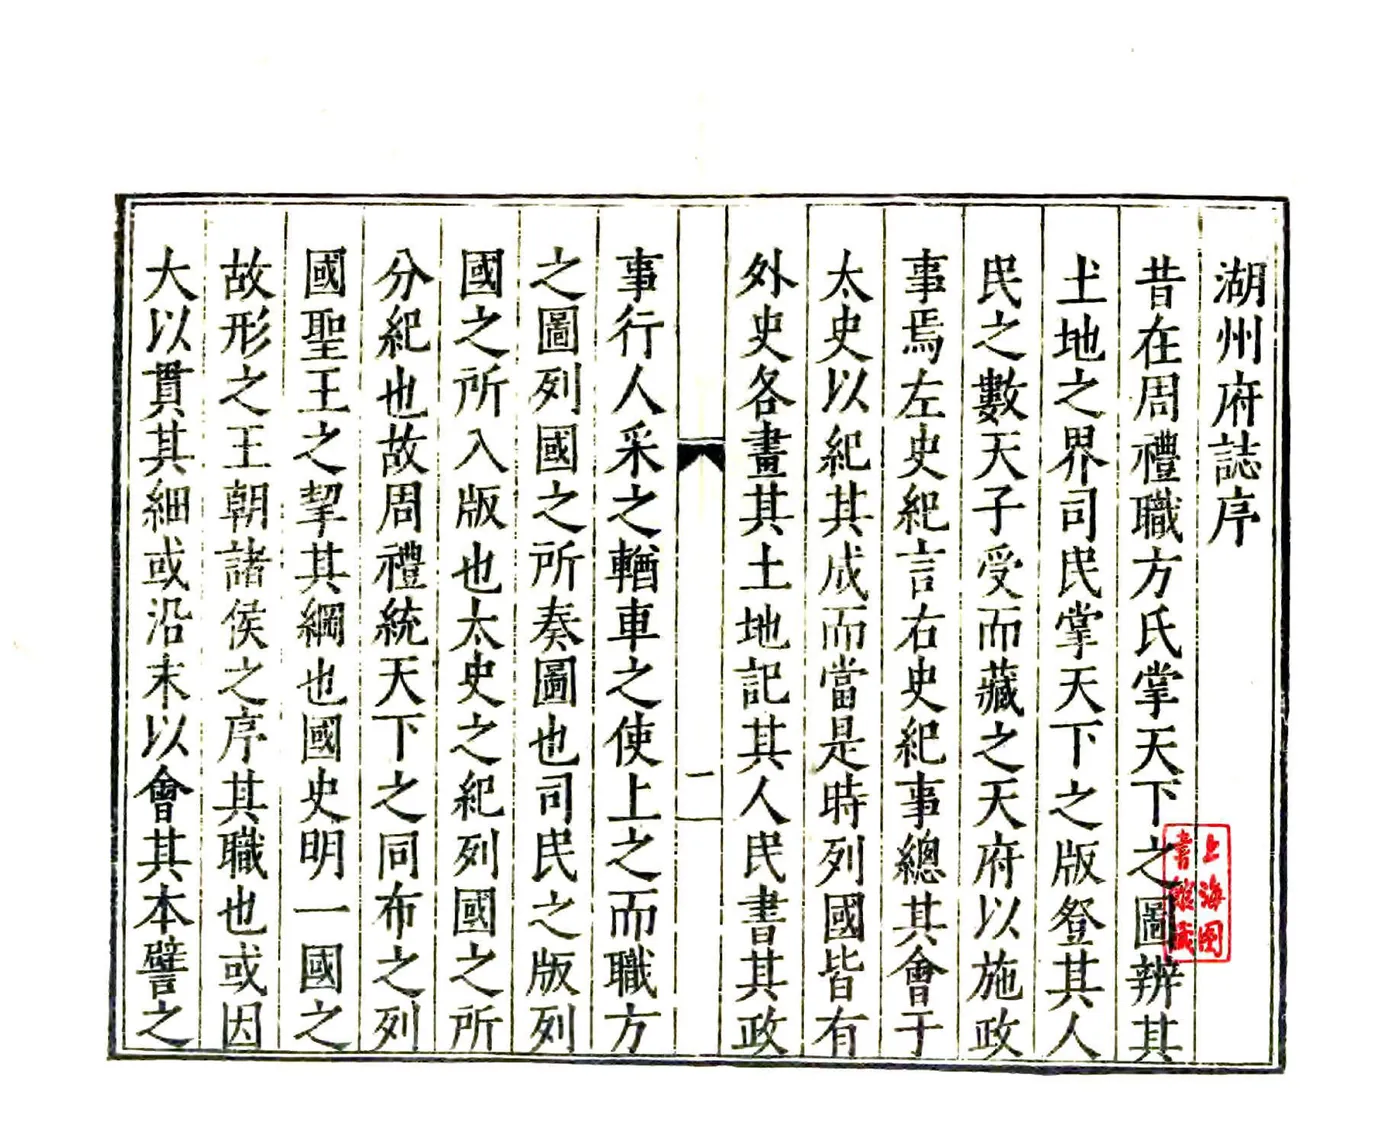 湖州府誌序
昔在周禮職方氏掌天下之圖辨其
土地之界司民掌天下之版登其人
民之數天子受而藏之天府以施政
事焉左史紀言右史紀事總其會于
太史以紀其成而當是時列國皆有
外史各畫其土地記其人民書其政
二
事行人采之輶車之使上之而職方
之圖列國之所奏圖也司民之版列
國之所入版也太史之紀列國之所
分紀也故周禮統天下之同布之列
國聖王之挈其綱也國史明一國之
故形之王朝諸侯之序其職也或因
大以貫其細或沿末以會其本譬之
上海图
書館藏